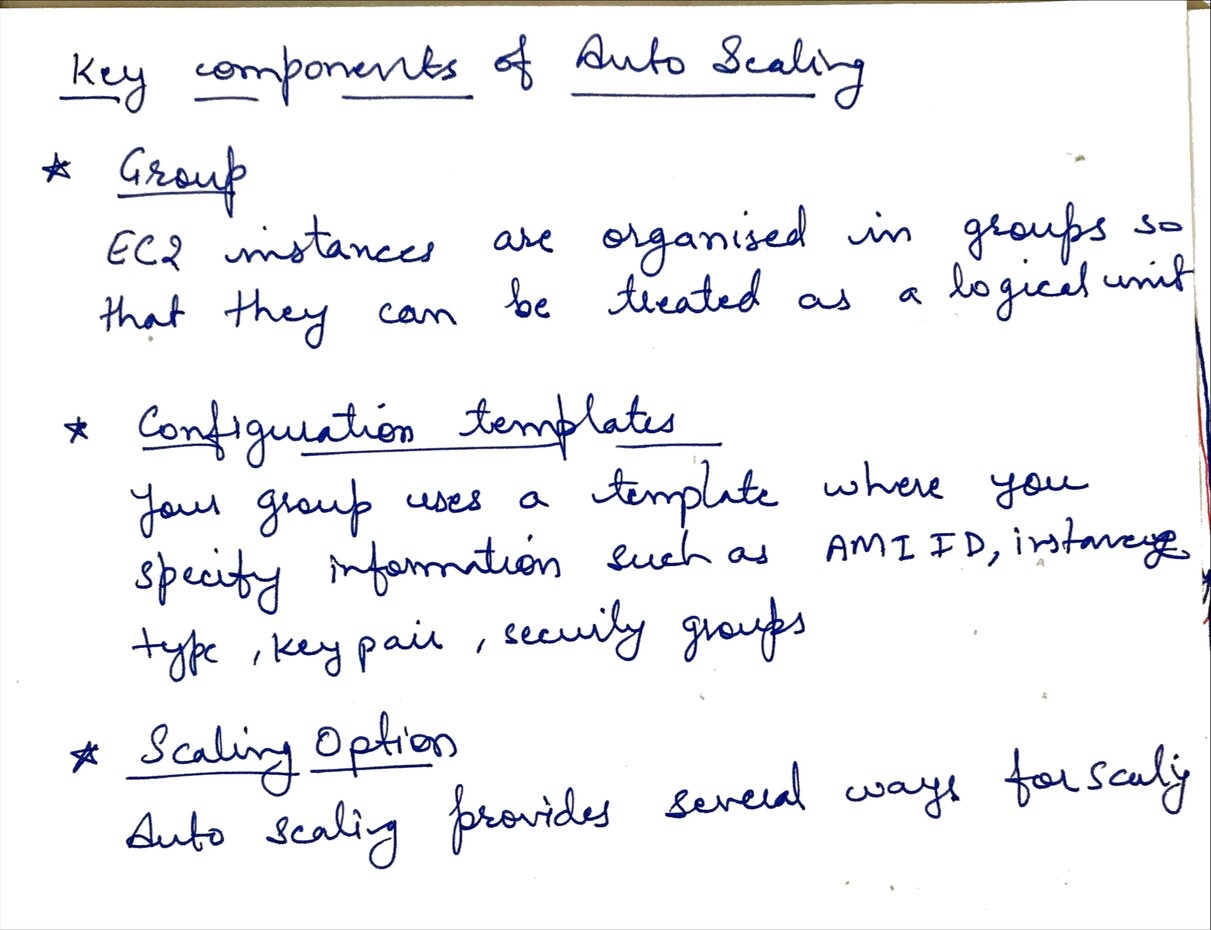 Key components of Auto Scaling
* Group
EC2 instances are organised in groups so
that they can be treated as a logical unit
* Configuration templates
Your group uses a template where you
specify information such as AMI ID, instance
type, key pair, security groups
* Scaling Option
Auto scaling provides several ways for scaling